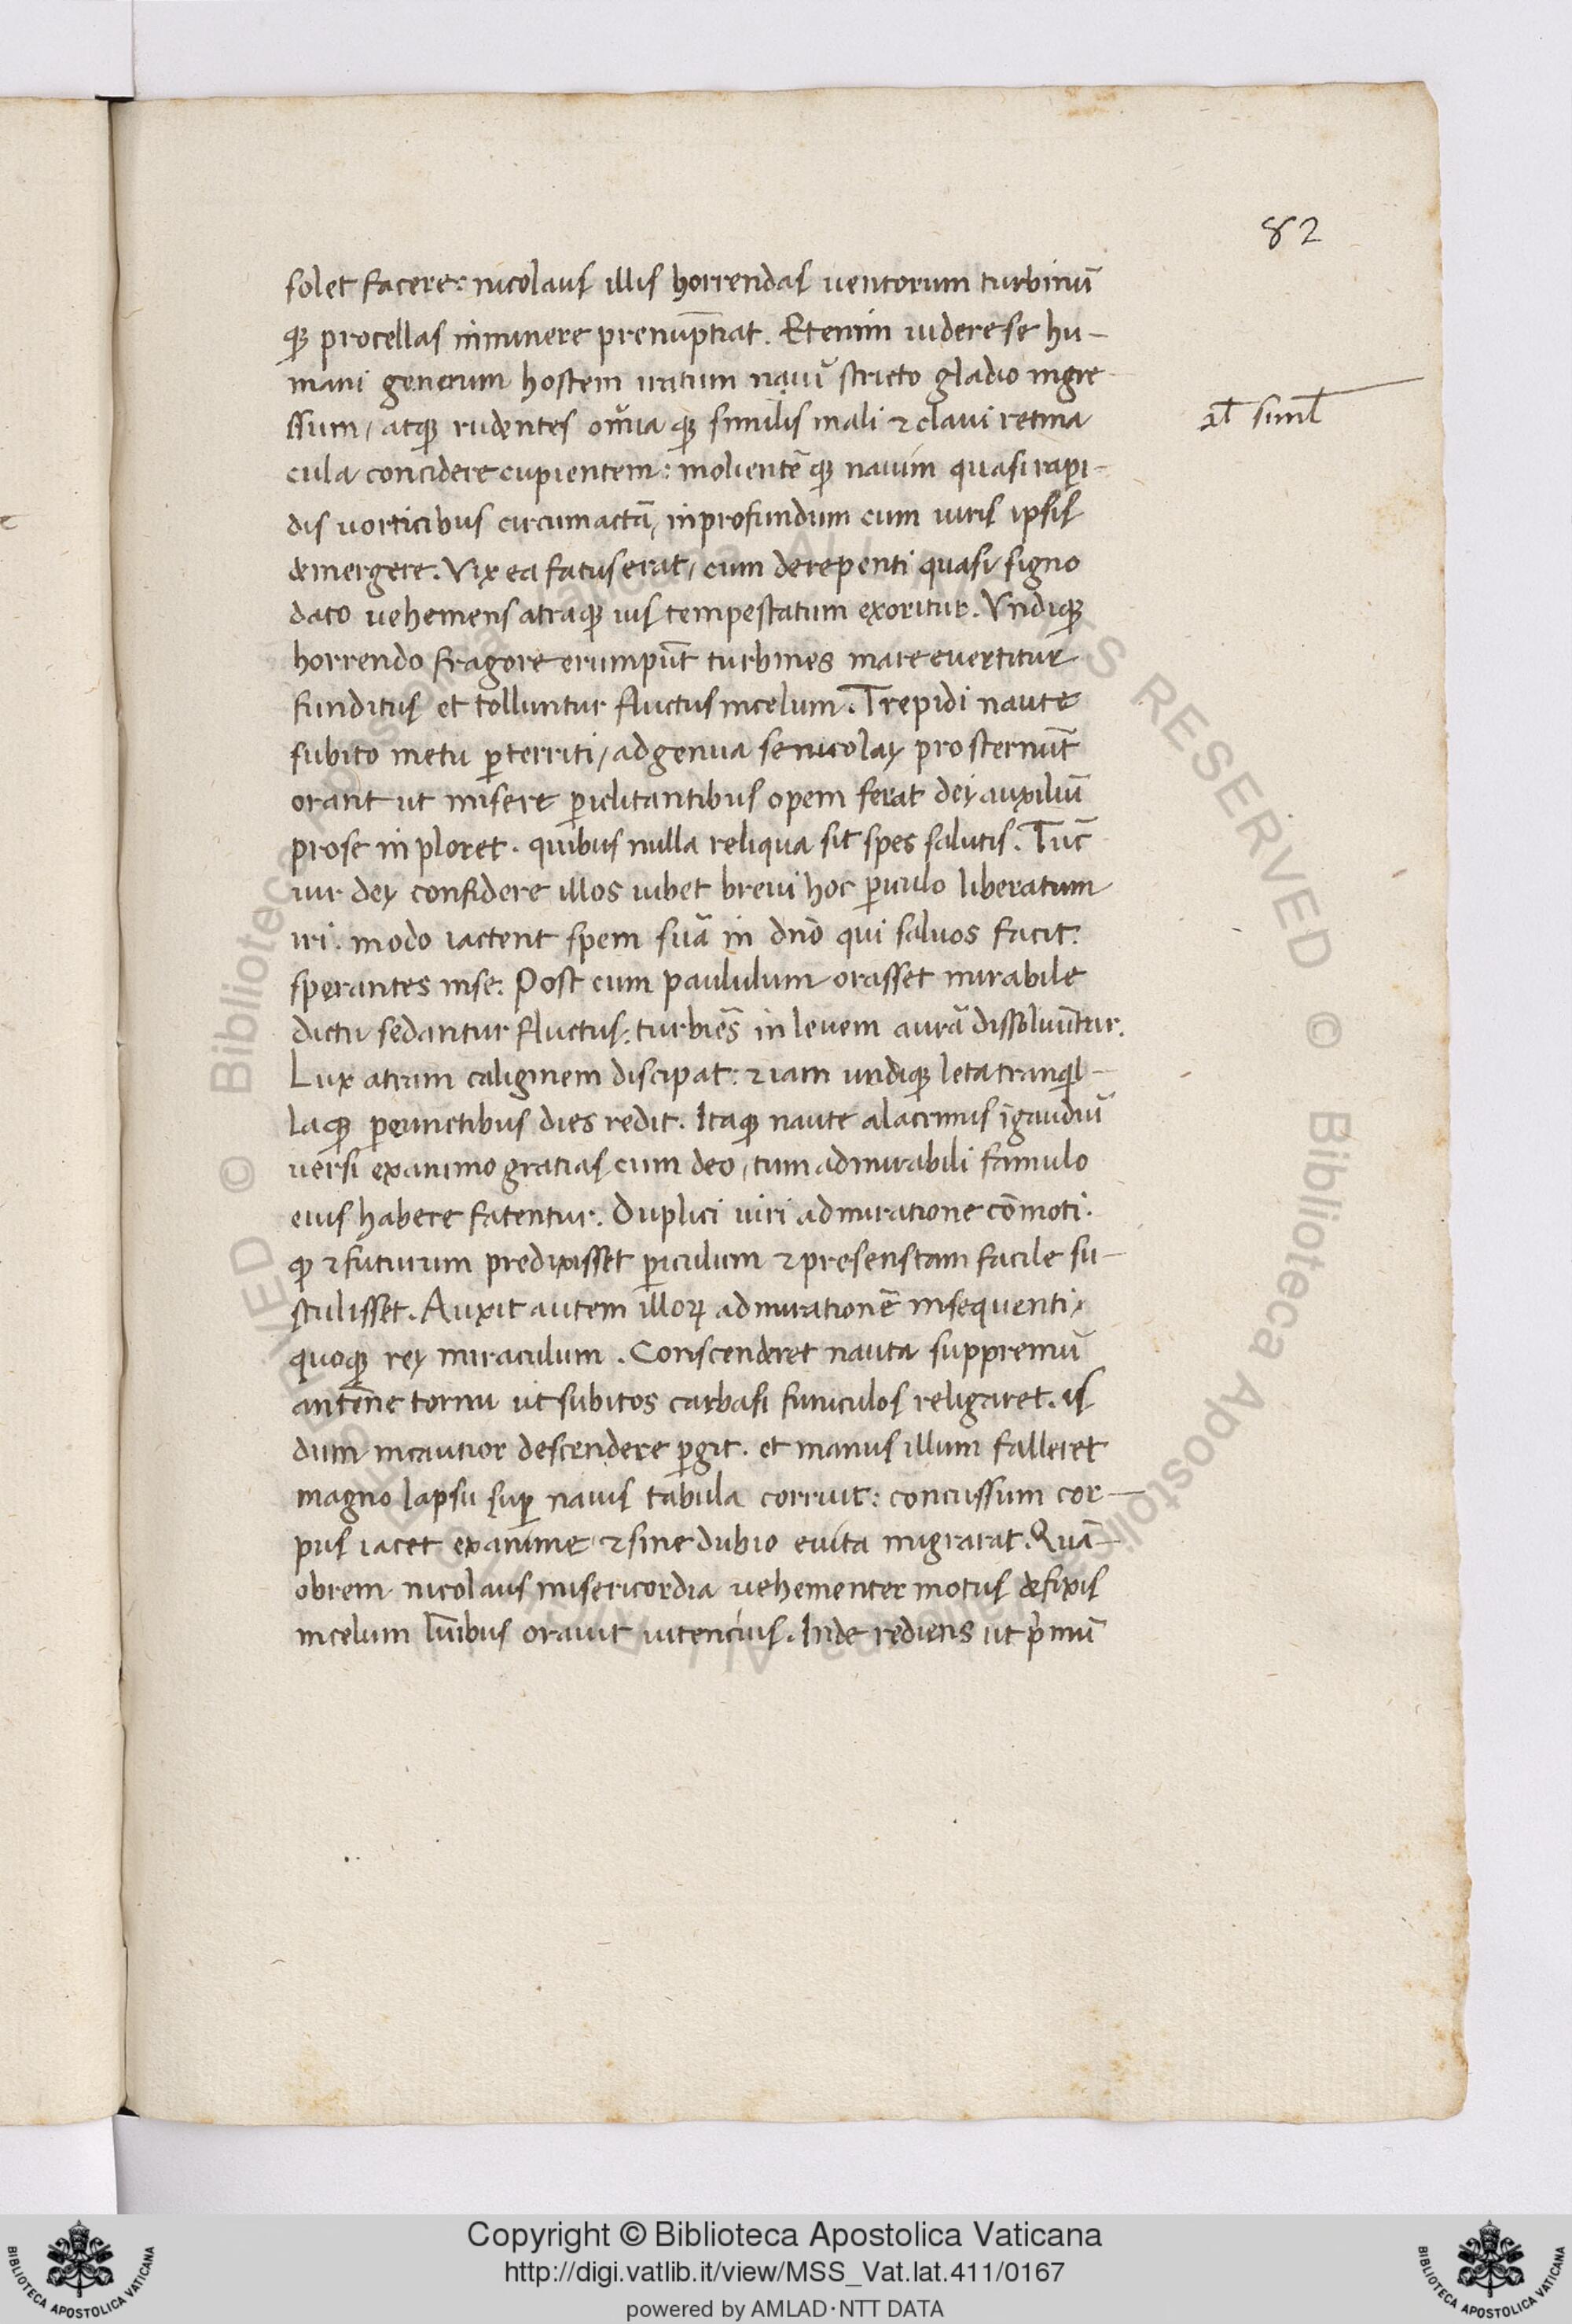 82
solet facere: nicolaus illis horrendas uentorum turbinũ
qꝫ procellas inminere prenuptiat. Etenim uidere se hu-
mani generum hostem iratum nauĩ stricto gladio ingre
ssum, atqꝫ rudentes omĩa qꝫ similis mali & claui retina
al simil
cula concidere cupientem: molientẽ qꝫ nauim quasi rapi-
dis uorticibus circumactã, in profundum cum uiris ipsis
demergere. Vix ea fatus erat, cum derepenti quasi signo
dato uehemens atraqꝫ uis tempestatum exoritur. Vndiqꝫ
horrendo fragore erumpũt turbines mare euertitur
funditus et tolluntur fluctus incelum. Trepidi naute
subito metu ꝑterriti, ad genua se nicolay prosternũt
orant ut misere ꝑiclitantibus opem ferat dey auxiliũ
prose inploret. quibus nulla reliqua sit spes salutis. Tũc
uir dey confidere illos iubet breui hoc ꝑiculo liberatum
iri. modo iactent spem suã in dño qui saluos facit:
sperantes inse: Post cum paululum orasset mirabile
dictu sedantur fluctus: turbiẽs in leuem aurã dissoluũtur.
Lux atram caliginem discipat: & iam undiqꝫ leta tranqͥl-
laqꝫ ꝑcunctibus dies redit. Itaqꝫ naute alacrimus ĩ gaudiũ
uersi ex animo gratias cum deo, tum admirabili famulo
eius habere fatentur. Duplici uiri admiratione cõmoti.
qꝫ & futurum predixisset ꝑiculum & presens tam facile su-
stulisset. Auxit autem illoꝝ admirationẽ insequenti,
quoqꝫ rey miraculum. Conscenderet nauta suppremũ
antẽne tornu ut subitos carbasi funiculos religaret. is
dum incautior descendere ꝑgit. et manus illum falleret
magno lapsu suꝑ nauis tabula corruit: concussum cor-
pus iacet exanime & sine dubio euita migrarat. Quã-
obrem nicolaus misericordia uehementer motus defixis
incelum lũibus orauit iutencius. Inde rediens ut pͥmũ
Copyright © Biblioteca Apostolica Vaticana
http://digi.vatlib.it/view/MSS_Vat.lat.411/0167
powered by AMLAD·NTT DATA